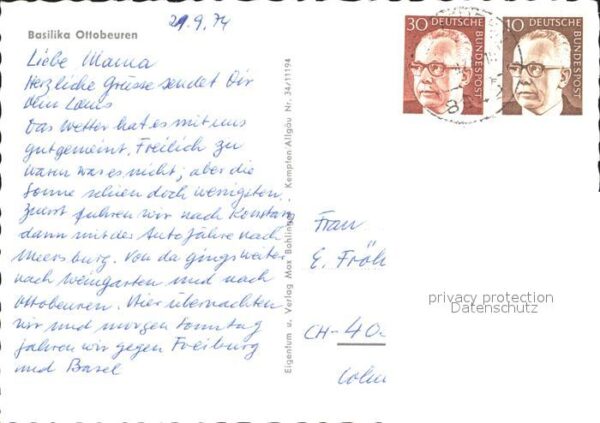 21.9.74
Basilika Ottobeuren
Liebe Mama
Herzliche Grüsse sendet Dir
dein Louis
Das Wetter hat es mit uns
gutgemeint. Freilich zu
warm war es nicht; aber die
Sonne schien doch wenigsten.
Zuerst fuhren wir nach Konstanz
dann mit der Autofähre nach
Meersburg. Von da gings weiter
nach Weingarten und nach
Ottobeuren. Hier übernachten
wir und morgen Sonntag
fahren wir gegen Freiburg
und Basel
Eigentum u. Verlag Max Bohlinger Kempten Allgäu Nr. 34/11194
30 DEUTSCHE BUNDESPOST
10 DEUTSCHE BUNDESPOST
Frau
E. Fröh
privacy protection
Datenschutz
CH-40